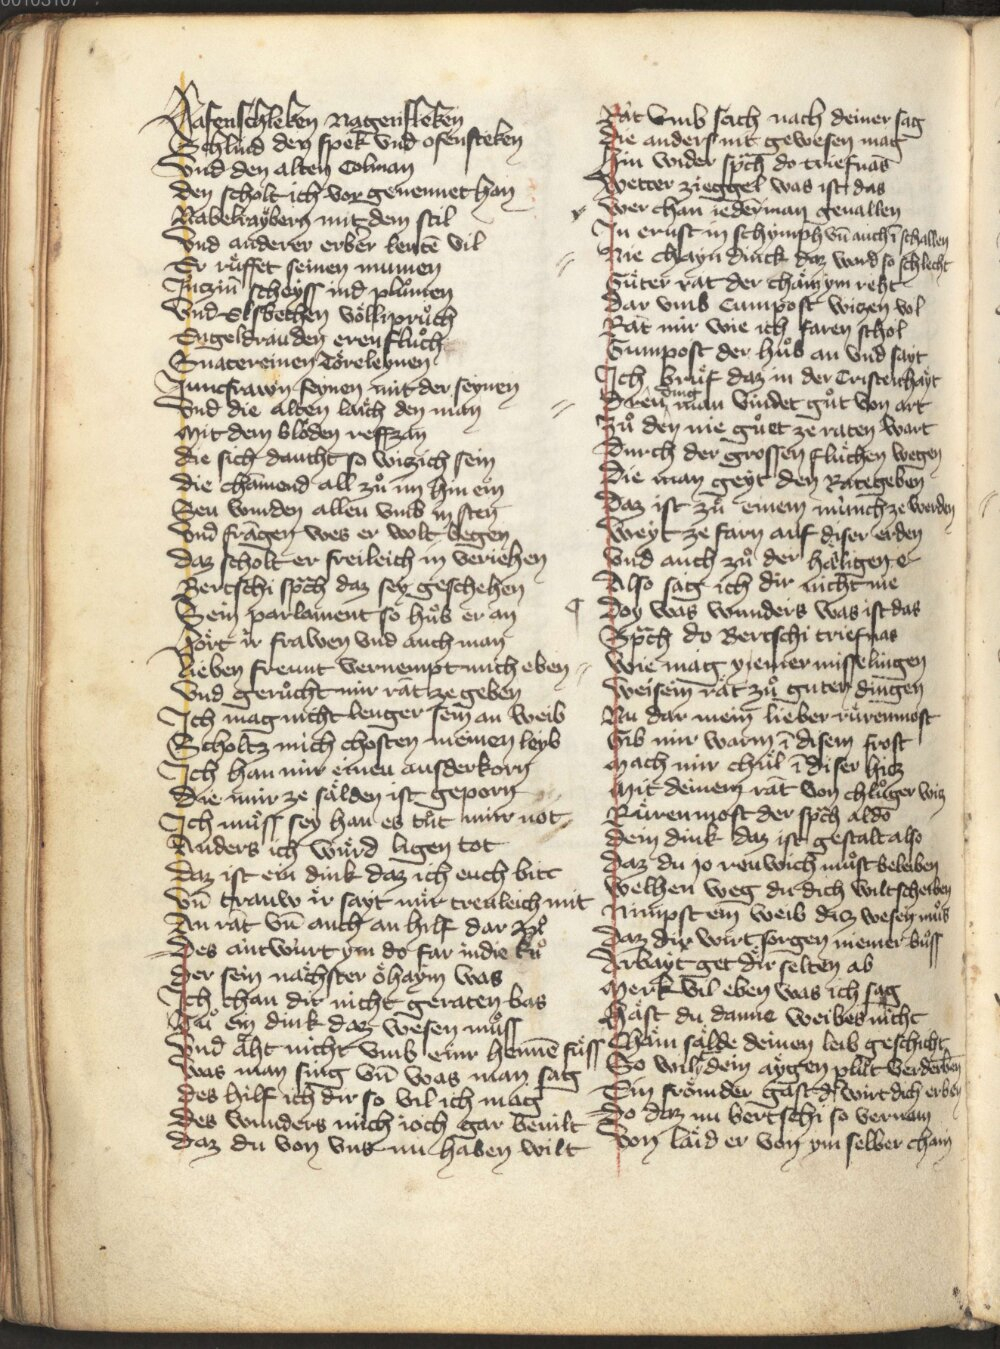 00103107
Hafenschleken Nagenfleken
Schlind den spek vnd ofensteken
Vnd den alten Colman
Den scholt ich vor genennet han
Nabelrayberg mit dem stil
Vnd anderer erber leutē vil
Er růffet seinen mumen
Jůczin scheyss ind plůmen
Vnd Elsbethen völlipruͦch
Engeldrauden erenfluͦch
Snatereinen Töreleynen
Junkfrawn feynen mit der seynen
Vnd die alten laich den man
Mit dem blöden reffzan
Die sich daucht so wiczich sein
Die chamend all zuͦ im hin ein
Seu wurden allen vmb in sten
Vnd fragen wes er wolt begen
Daz scholt er freileich in veriehen
Bertschi sp̄ch daz sey geschehen
Sein parlament so huͦb er an
Hört ir frawen vnd auch man
Lieben freunt vernempt mich eben
Vnd geruͦcht mir rāt ze geben
Ich mag nicht lenger sein an weib
Scholtz mich chosten meinen leyb
Ich han mir einen auserkorn
Die mir ze sälden ist geporn
Ich muͦss sey han es tuͦt mir not
Anders ich würd ligen tot
Daz ist ein dink daz ich euch bitt
Vn̄ trauw ir sayt mir treuleich mit
An rāt vn̄ auch an hilf dar zuͦ
Des antwurt ym do far in die kuͦ
Der sein nächster öhaym was
Ich chan dir nicht geraten bas
Tuͦ ein dink daz wesen muͦss
Vnd äht nicht vmb einr hennē fuͦss
Was man sing vn̄ was man sag
Des hilf ich dir so vil ich mag
Des wunders mich ioch gar beuilt
Daz du von vns nu haben wilt
Rāt vmb sach nach deiner sag
Die anders nit gewesen mag
Hin wider sp̄ch do triefnas
Vetter zieggel was ist das
Wer chan iederman geuallen
In ernst in schymph vn̄ auch ī schallen
Nie chayn dinck daz ward so schlecht
Guͦter rat der cham ym reht
Dar vmb Cumpost wiczen vol
Rāt mir wie ich faren schol
Gumpost der huͦb an vnd sayt
Ich bruͤf daz in der Cristenhayt
Dreu ding man vindet guͦt von art
Zuͦ den nie guͦet ze raten wart
Durch der grossen fluͤchen wegen
Die man geyt den Ratgeben
Daz ist zuͦ einem münch ze werden
Weyt ze farn auf diser erden
Vnd auch zuͦ der haligen e
Also sag ich dir nicht me
Hoy was wunders was ist das
Sp̄ch do Bertschi triefnas
Wie mag yiemer misselingen
Weisem rāt zuͦ guten dingen
Nu dar mein lieber rürenmost
Gib mir warm ī disem frost
Mach mir chuͤl ī diser hicz
Mit deinem rāt von chluͦger wicz
Rürenmost der sp̄ch aldo
Dem dink daz ist gestalt also
Daz du yo reuwich muͦst beleiben
Welhen weg du dich wilt scheiben
Nimpst ein weib daz wesen muͦs
Daz dir wirt sorgen niemer buͦss
Arbayt get dir selten ab
Merk vil eben was ich sag
Häst du danne weibes nicht
Chain sälde deinen leib geschicht
So wil dein aygen pluͦt verderben
Ein frömder gast d' wirt dich erben
Do daz nu bertschi so vernam
Von laid er von ym selber cham